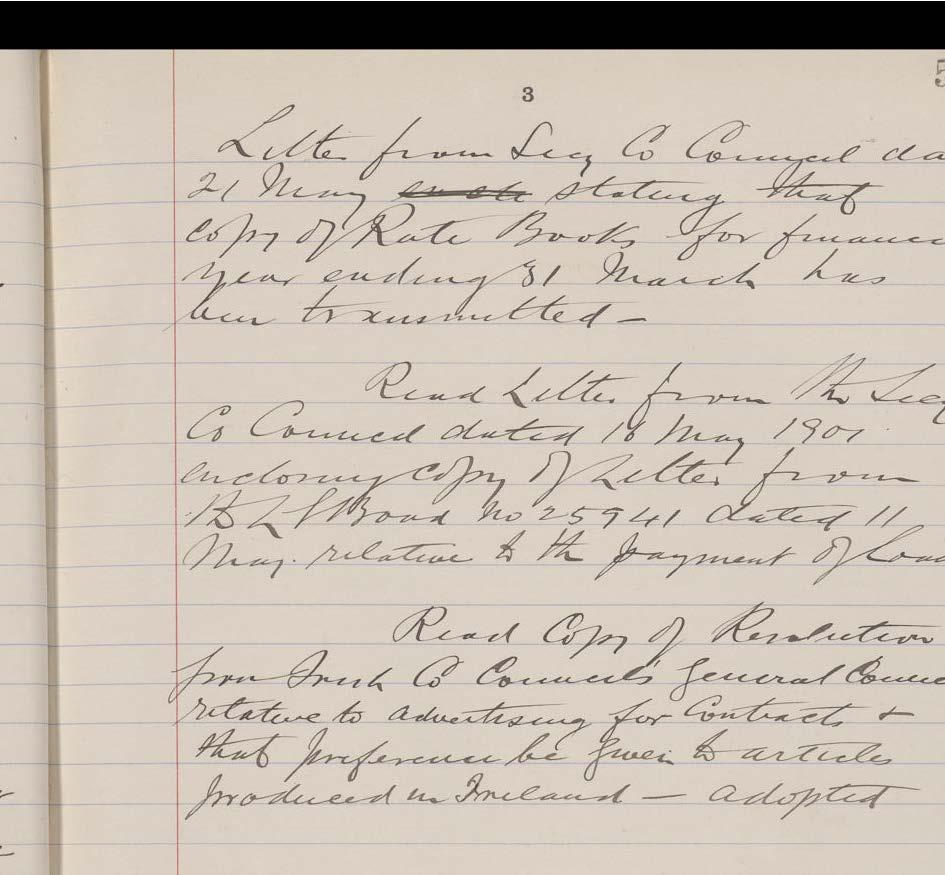 3
5
Letter from Secy Co Council da
21 May stating that
copy of Rate Books for financi
year ending 31 March has
been transmitted —
Read Letter from the Secy
Co Council dated 16 May 1901
enclosing copy of Letter from
the LG Board No 25941 dated 11
May. relative to the payment of Loan
Read Copy of Resolution
from Irish Co Councils General Counc
relative to advertising for Contracts +
that preference be given to articles
produced in Ireland — adopted